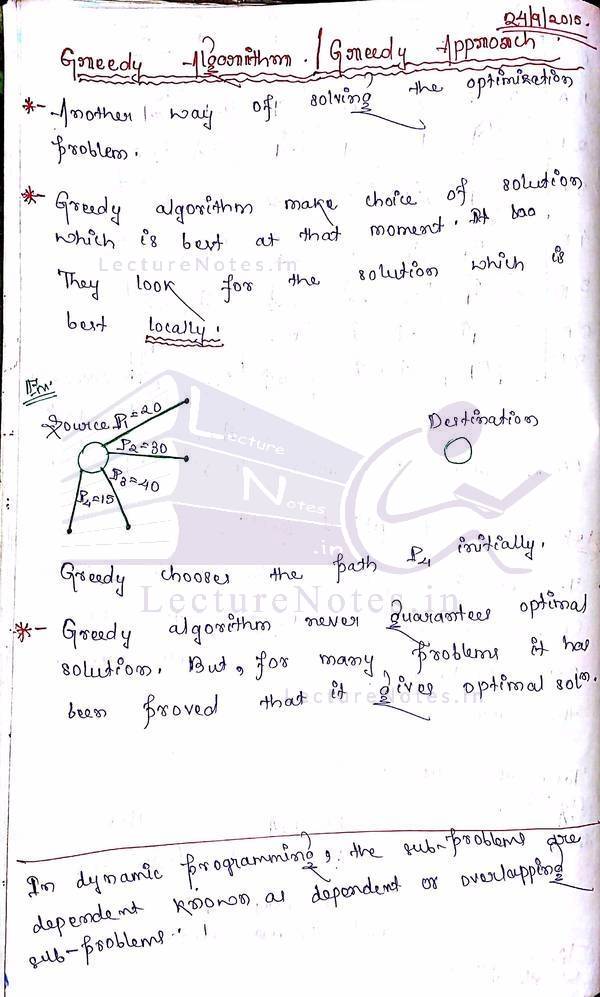 24/9/2015.
Greedy Algorithm. / Greedy Approach
*- Another way of solving the optimization
problem.
*- Greedy algorithm make choice of solution
which is best at that moment.
LectureNotes.in
They look for the solution which is
best locally.
Ex:
Source P1=20
Destination
Lecture
P2=30
P3=40
P4=15
Notes
.in
Greedy chooses the path P4 initially.
LectureNotes.in
*- Greedy algorithm never guarantees optimal
solution. But, for many problems it has
LectureNotes.in
been proved that it gives optimal soln.
In dynamic programming, the sub-problems are
dependent known as dependent or overlapping
sub-problems.